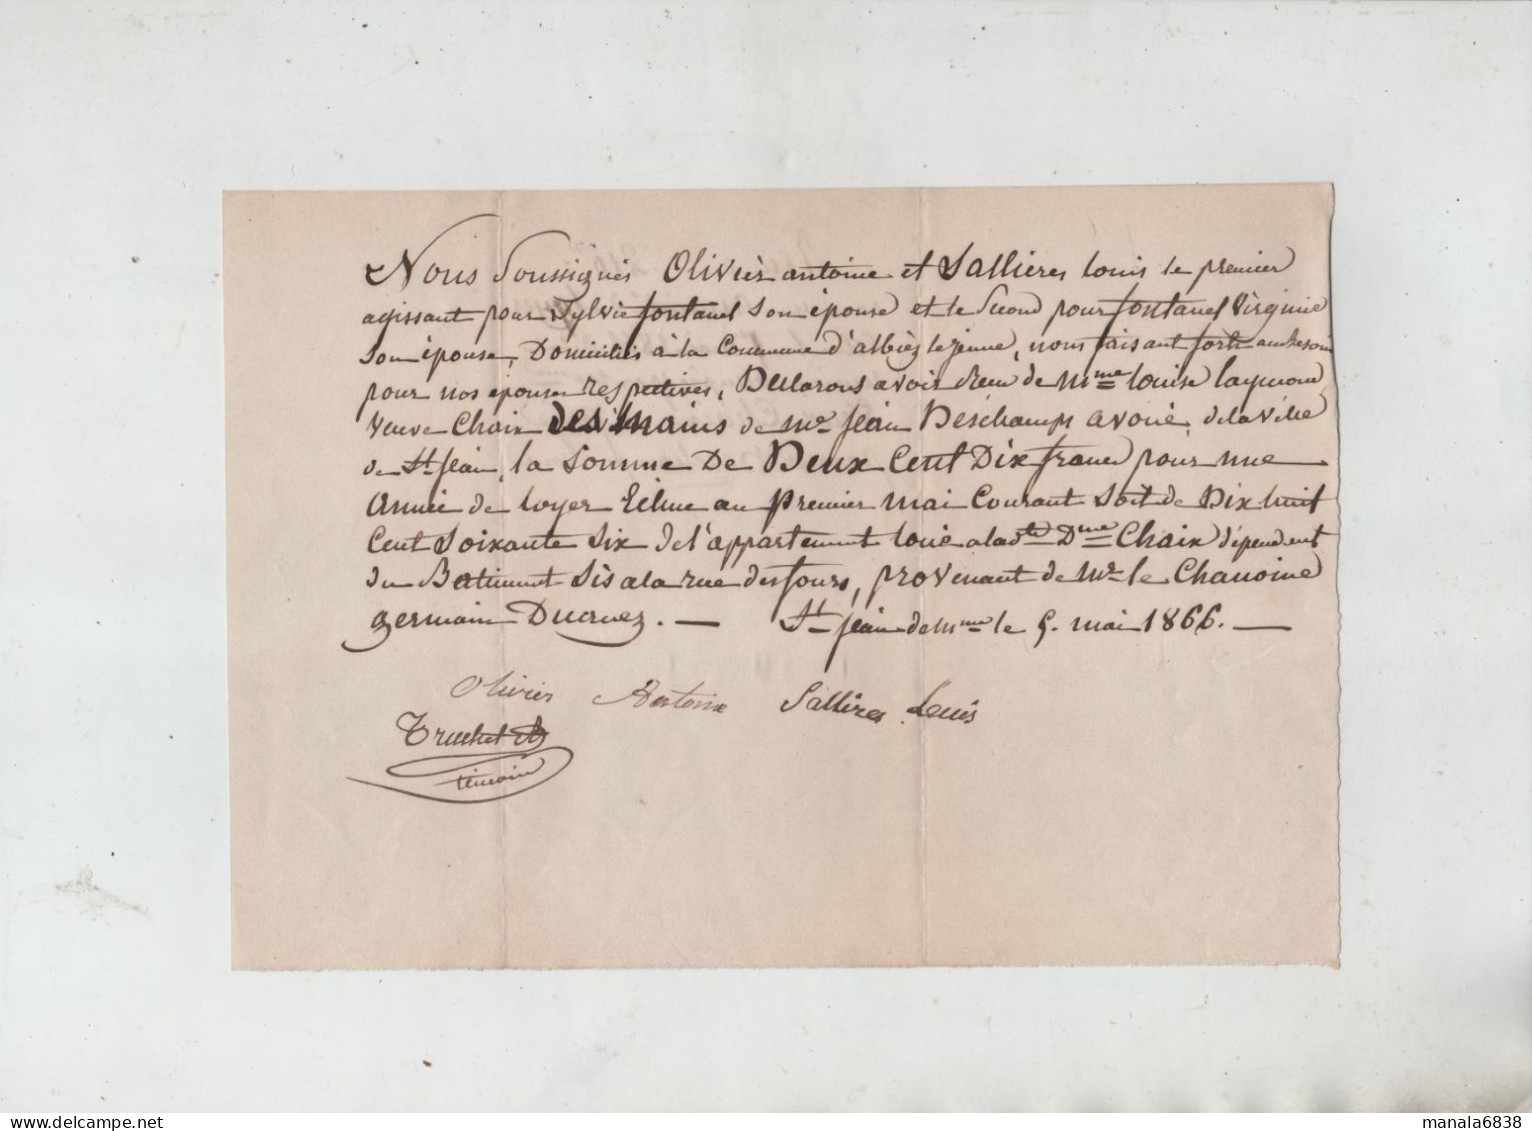 Nous Soussignés Olivier antoine et Sallieres louis le premier
agissant pour Sylvie fontanel Son épouse et le Second pour fontanel Virginie
Son épouse, Domiciliés à la Commune d'albiez le jeune, nous faisant forts au besoin
pour nos épouses respectives, Declarons avoir Recu de Mme louise
Veuve Chaix des mains de Mr Jean Deschamps avoué, de la ville
de St Jean, la Somme De Deux Cent Dix francs pour une
Année de loyer Echue au premier mai Courant Soit de Dix huit
Cent Soixante Six de l'appartement loué a la dte Dme Chaix dépendent
du Batiment Sis a la rue des fours, provenant de Mr le Chanoine
germain Ducruez. — St Jean de Mnne le 5. mai 1866. —
Olivier Antoine Sallieres Louis
Truchet
témoin
manala6838